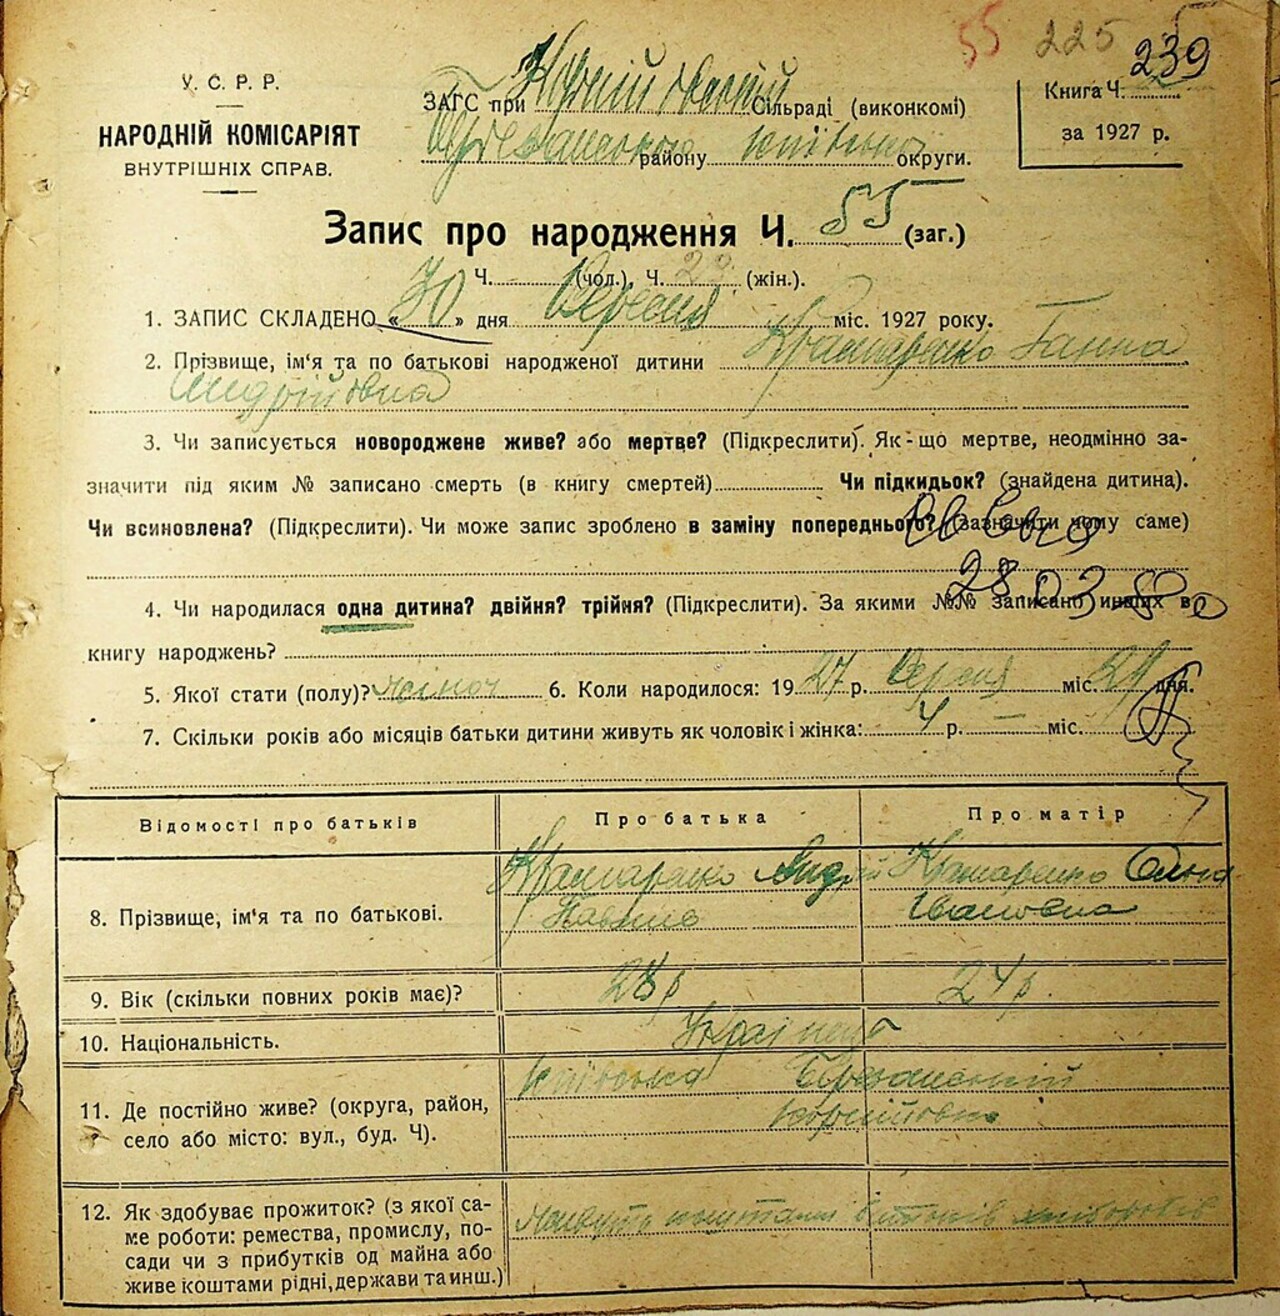 55 225 239
У. С. Р. Р.
НАРОДНІЙ КОМІСАРІЯТ
ВНУТРІШНІХ СПРАВ.
ЗАГС при Сільраді (виконкомі)
району Київської округи.
Книга Ч.
за 1927 р.
Запис про народження Ч. 55 (заг.)
Ч. (чол.), Ч. 23 (жін.).
1. ЗАПИС СКЛАДЕНО „30" дня Вересня міс. 1927 року.
2. Прізвище, ім'я та по батькові народженої дитини Крамаренко Ганна
Андрійовна
3. Чи записується новороджене живе? або мертве? (Підкреслити). Як-що мертве, неодмінно за-
значити під яким № записано смерть (в книгу смертей) Чи підкидьок? (знайдена дитина).
Чи всиновлена? (Підкреслити). Чи може запис зроблено в заміну попереднього? (зазначити чому саме)
28.03.80
4. Чи народилася одна дитина? двійня? трійня? (Підкреслити). За якими №№ записано инших в
книгу народжень?
5. Якої стати (полу)? жіноч 6. Коли народилося: 1927 р. Вересня міс. 29 дня.
7. Скільки років або місяців батьки дитини живуть як чоловік і жінка: 4 р. — міс.
Відомості про батьків Про батька Про матір
8. Прізвище, ім'я та по батькові. Крамаренко Андрій Крамаренко Олена
Павлів Івановна
9. Вік (скільки повних років має)? 28 р 24 р.
10. Національність.
11. Де постійно живе? (округа, район, село або місто: вул., буд. Ч). Київська Березанський
12. Як здобуває прожиток? (з якої са-
ме роботи: ремества, промислу, по-
сади чи з прибутків од майна або
живе коштами рідні, держави та инш.)